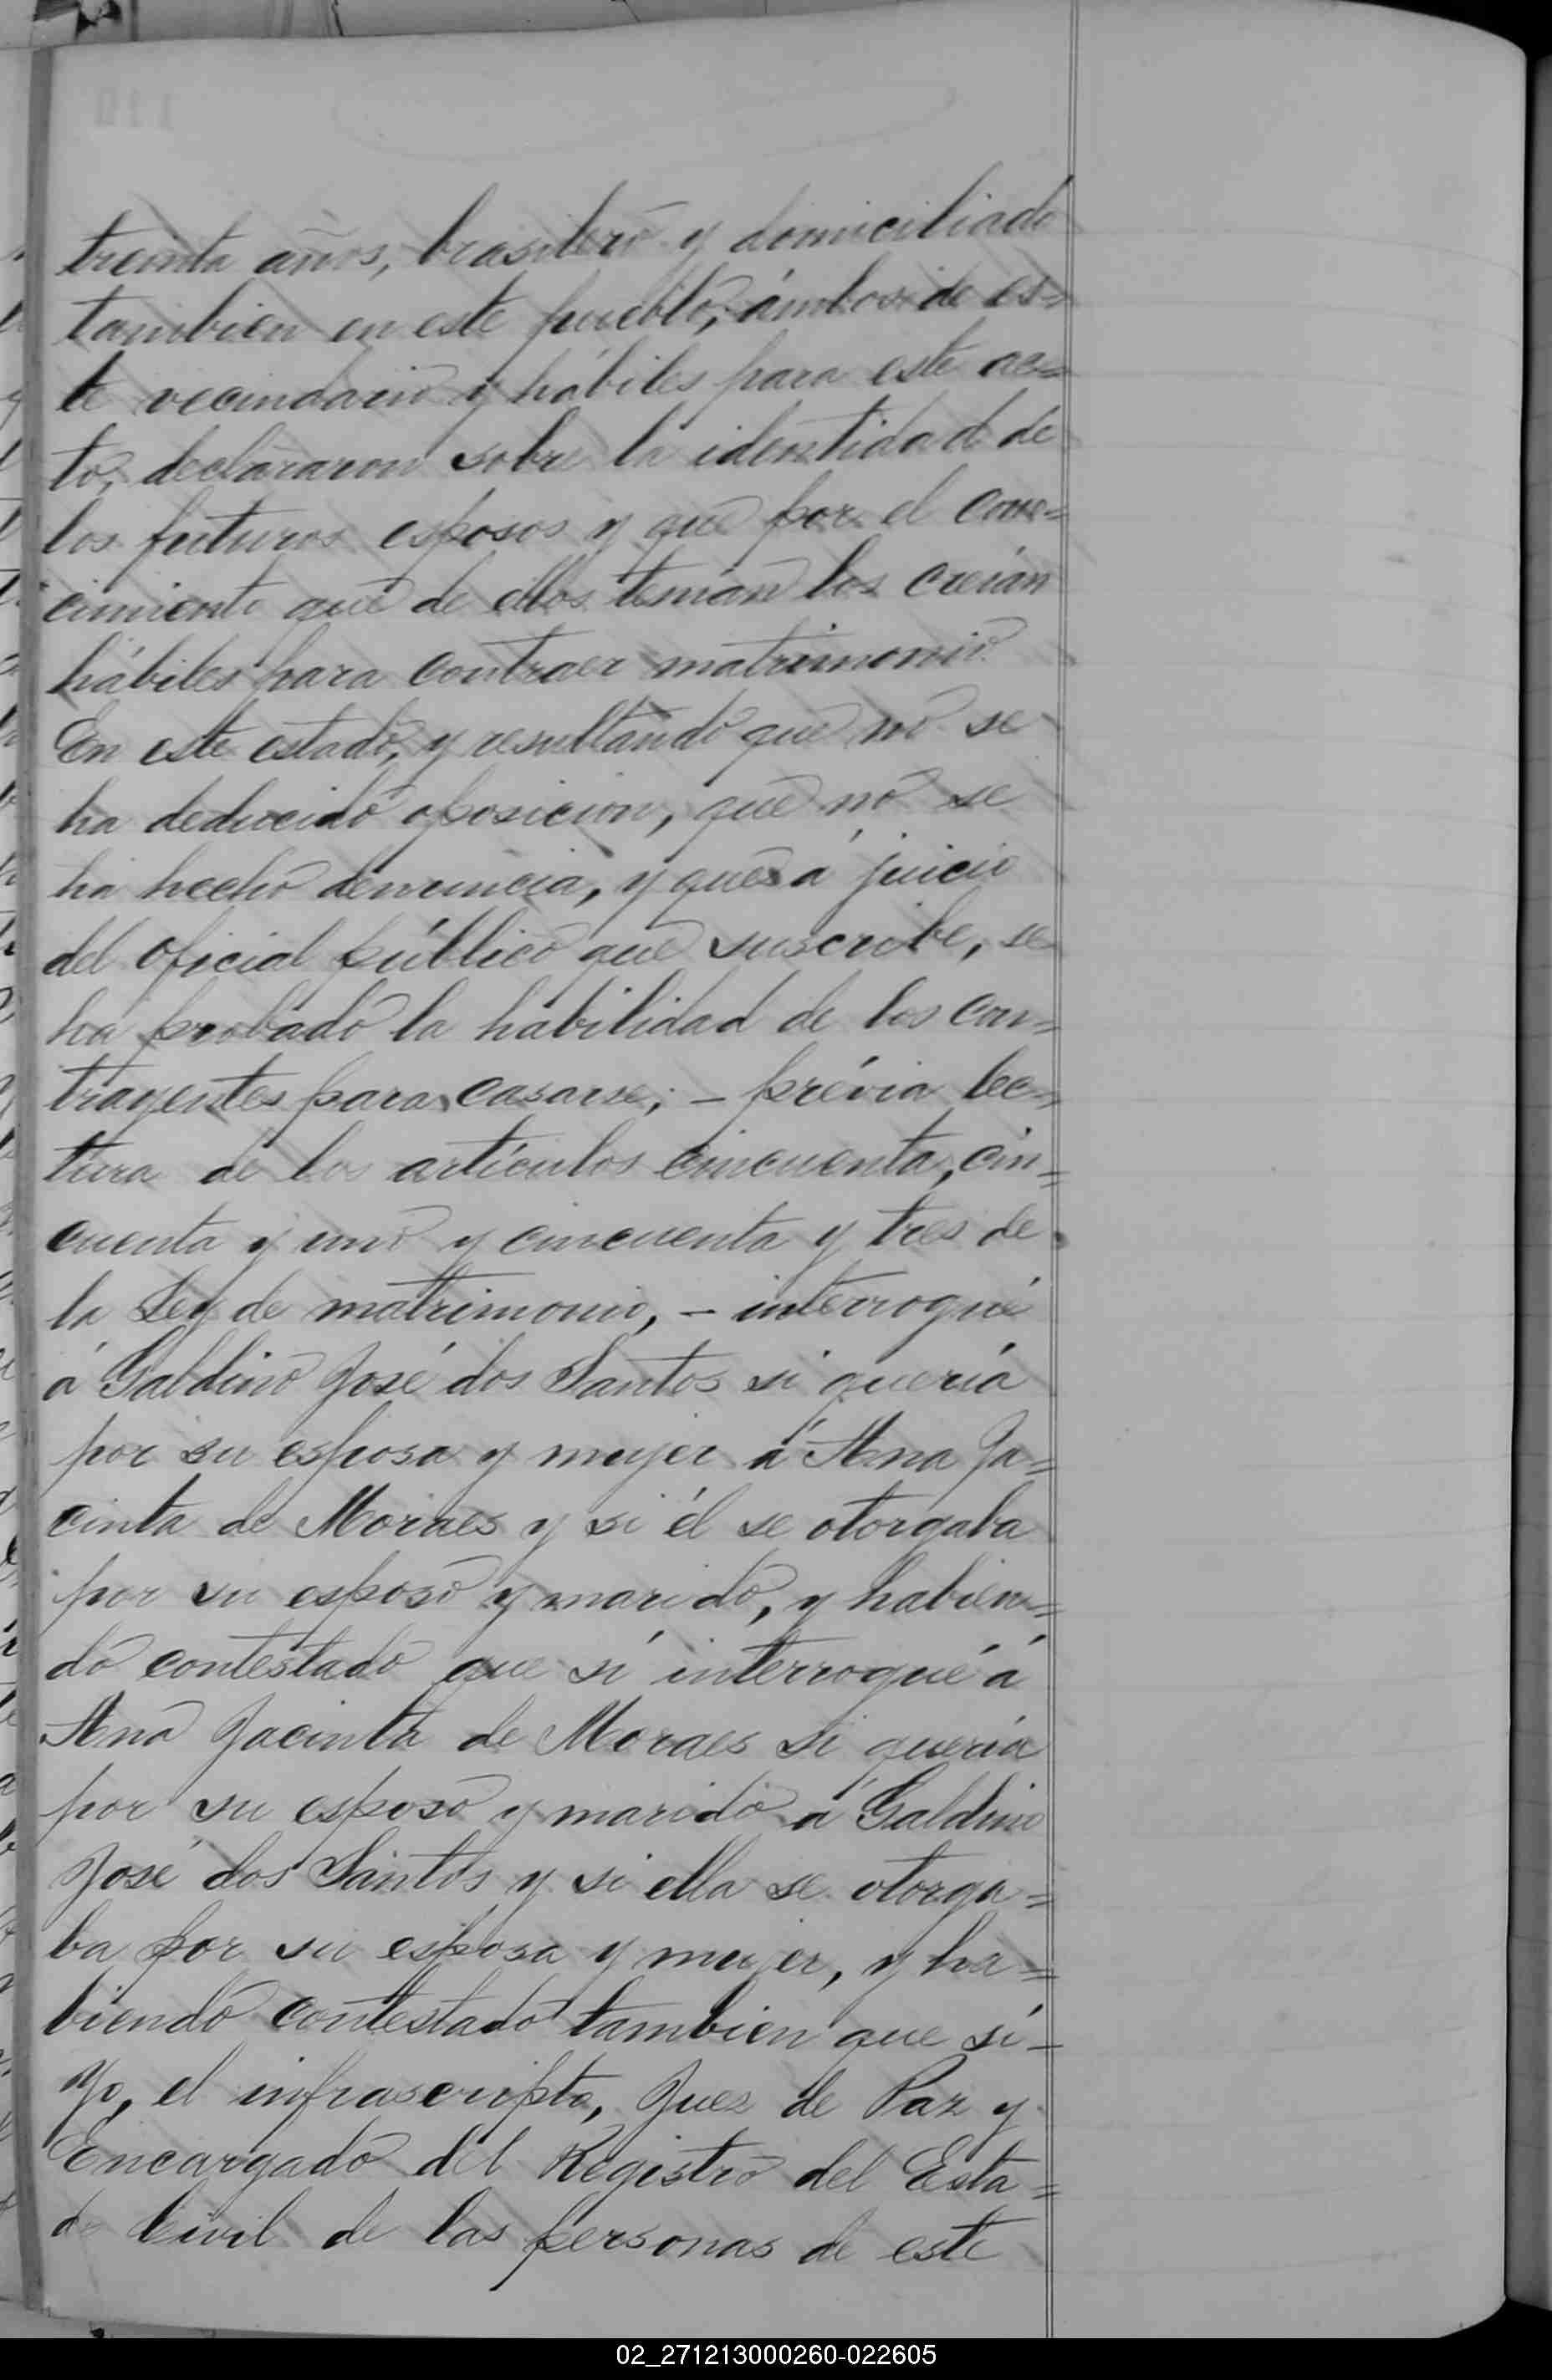 treinta años, brasilero y domiciliado
tambien en este pueblo, ámbos de es=
te vecindario y hábiles para este ac=
to, declararon sobre la identidad de
los futuros esposos y que por el cono=
cimiento que de ellos tenían los creían
hábiles para contraer matrimonio.
En este estado, y resultando que no se
ha deducido oposicion, que no se
ha hecho denuncia, y que á juicio
del oficial público que suscribe, se
ha probado la habilidad de los con=
trayentes para casarse; - prévia lec=
tura de los artículos cincuenta, cin=
cuenta y uno y cincuenta y tres de
la Ley de matrimonio, - interrogué
á Galdino José dos Santos si quería
por su esposa y mujer á Ana Ja=
cinta de Moraes y si él se otorgaba
por su esposo y marido, y habien=
do contestado que sí interrogué á
Ana Jacinta de Moraes si quería
por su esposo y marido á Galdino
José dos Santos y si ella se otorga=
ba por su esposa y mujer, y ha=
biendo contestado tambien que sí -
Yo, el infrascripto, Juez de Paz y
Encargado del Registro del Esta=
do Civil de las personas de este
02_271213000260-022605